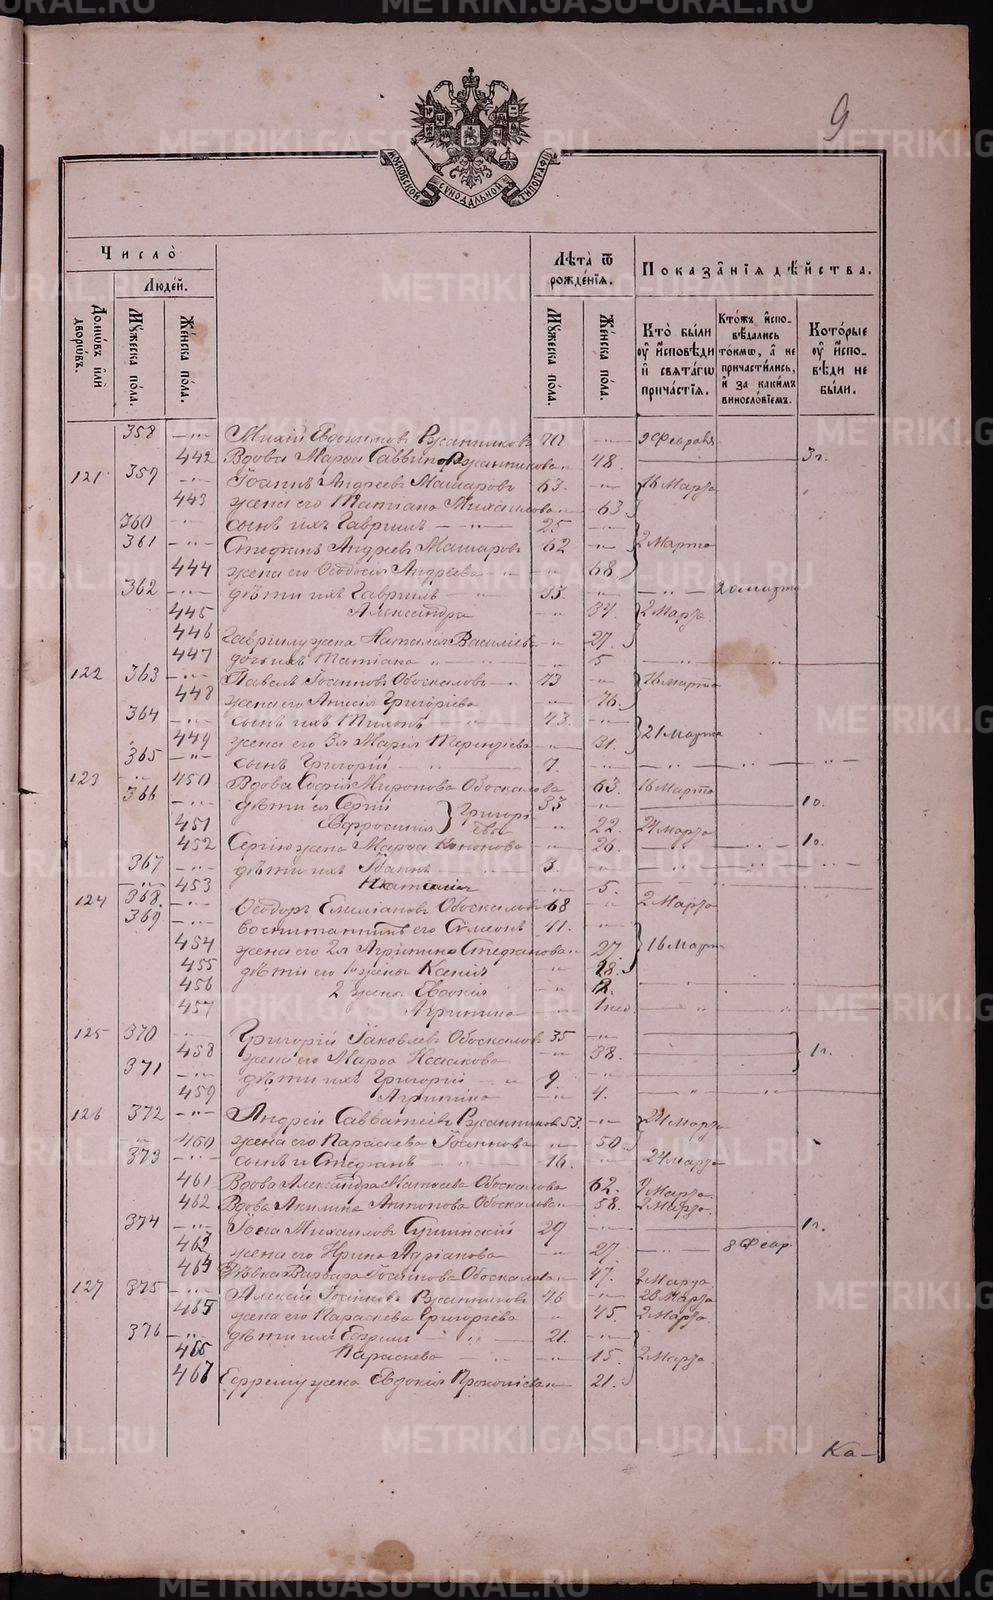 9
МОСКОВСКОЙ СѴНОДАЛЬНОЙ ТИПОГРАФІИ
Число̀
Людей.
Домѡвъ илѝ дворѡвъ.
Мꙋжеска пола.
Женска пола.
Лѣта ѿ рожденїѧ.
Мꙋжеска пола.
Женска пола.
Показанїѧ дѣйства.
Кто̀ были ᲂу҆ и҆сповѣди и҆ свѧтагѡ причастїѧ.
Ктожъ и҆сповѣдались токмѡ, а҆ не причастились, и҆ за какимъ винословїемъ.
Которые ᲂу҆ и҆сповѣди не были.
358 —"— Михѣй Евдокимовъ Ржанниковъ 70 —"— 9 Февраля
442 Вдова Марѳа Саввина Ржанникова —"— 48. 3 г.
121 359 —"— Іоаннъ Андреевъ Машаровъ 63. —"— 16 Марта
443 жена его Татіана Михаилова —"— 63
360 —"— сынъ ихъ Гавріилъ —"— 25 —"—
361 —"— Стефанъ Андреевъ Машаровъ 62 —"— 2 Марта
444 жена его Ѳеодосія Андреева —"— 68.
362 —"— дѣти ихъ Гавріилъ —"— 35. —"— 20 марта
445 Александра —"— 37 2 Марта
446 Гавріилу жена Наталія Василіева —"— 27.
447 дочь ихъ Татіана —"— 5
122 363 —"— Павелъ Іоанновъ Обоскаловъ 73 —"— 16 марта
448 жена его Анисія Григоріева —"— 76.
364 —"— сынъ ихъ Тихонъ 43. —"— 21 Марта
449 жена его 3я Марія Терентіева —"— 31.
365 —"— сынъ Григорій —"— 7. —"—
123 450 Вдова Софія Миронова Обоскалова 63. 16 Марта
366 —"— дѣти ея Сергій } Григорьевы 33 —"— 1 г.
451 Евфросинія —"— 22. 24 марта
452 Сергію жена Марѳа Кононова —"— 26. 1 г.
367 —"— дѣти ихъ Іоаннъ 3. —"—
453 Наталія —"— 5.
124 368. —"— Ѳеодоръ Емиліановъ Обоскаловъ 68 —"— 2 Марта
369 —"— воспитанникъ его Сѵмеонъ 41. —"— 16 Марта
454 жена его 2я Агрипина Стефанова —"— 27
455 дѣти его 1й жены Ксенія —"— 18.
456 2 жены Евдокія —"— 12.
457 Агрипина —"— 1 нед.
125 370 —"— Григорій Іаковлевъ Обоскаловъ 35 —"— 1 г.
458 жена его Марѳа Исаакова —"— 38.
371 —"— дѣти ихъ Григорій —"— 9. —"—
459 Агрипина —"— 4.
126 372 —"— Андрей Савватіевъ Ржанниковъ 53. —"— 24 Марта
460 жена его Параскева Іоаннова —"— 50.
373 —"— сынъ и Стефанъ 16. —"— 24 марта
461 Вдова Александра Матѳеева Обоскалова 62. 9 Марта
462 Вдова Акилина Антонова Обоскалова —"— 58. 2 Марта
374 —"— Іона Михаиловъ Сушинскій 29 —"— 1 г.
463 жена его Ирина Адріанова —"— 27. 8 Февр.
464 Дѣвка Варвара Іоаннова Обоскалова —"— 47. 2 Марта
127 375 —"— Алексій Іоанновъ Ржанниковъ 46 —"— 20 Марта
465 жена его Параскева Григоріева —"— 45. 2 Марта
376 —"— дѣти ихъ Ефремъ —"— 21. —"—
466 Параскева —"— 15. 2 Марта
467 Ефрему жена Евдокія Прокопіева —"— 21.
Ка—
METRIKI.GASO-URAL.RU